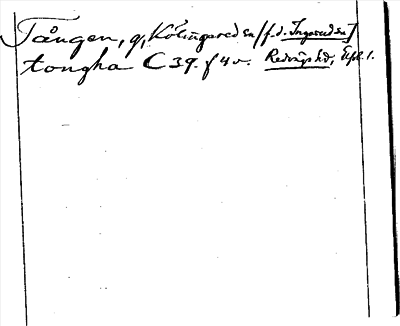 Tången, g, Kölingared sn [f.d. Ingared sn]
tongha C 39. f 4 v. Redvägs hd, Älvsb. l.